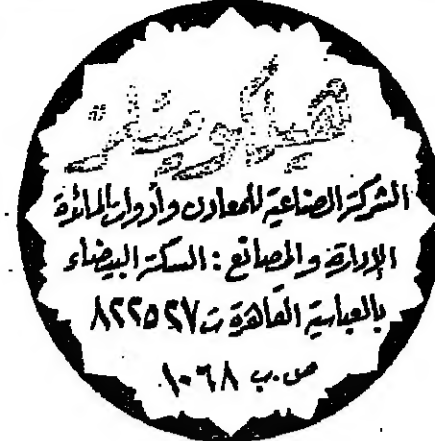 الشركة الصناعية للمعادن وأدوات المائدة
الإدارة والمصانع : السكة البيضاء
بالعباسية القاهرة ت ٨٢٢٥٢٧
ص.ب ١٠٦٨